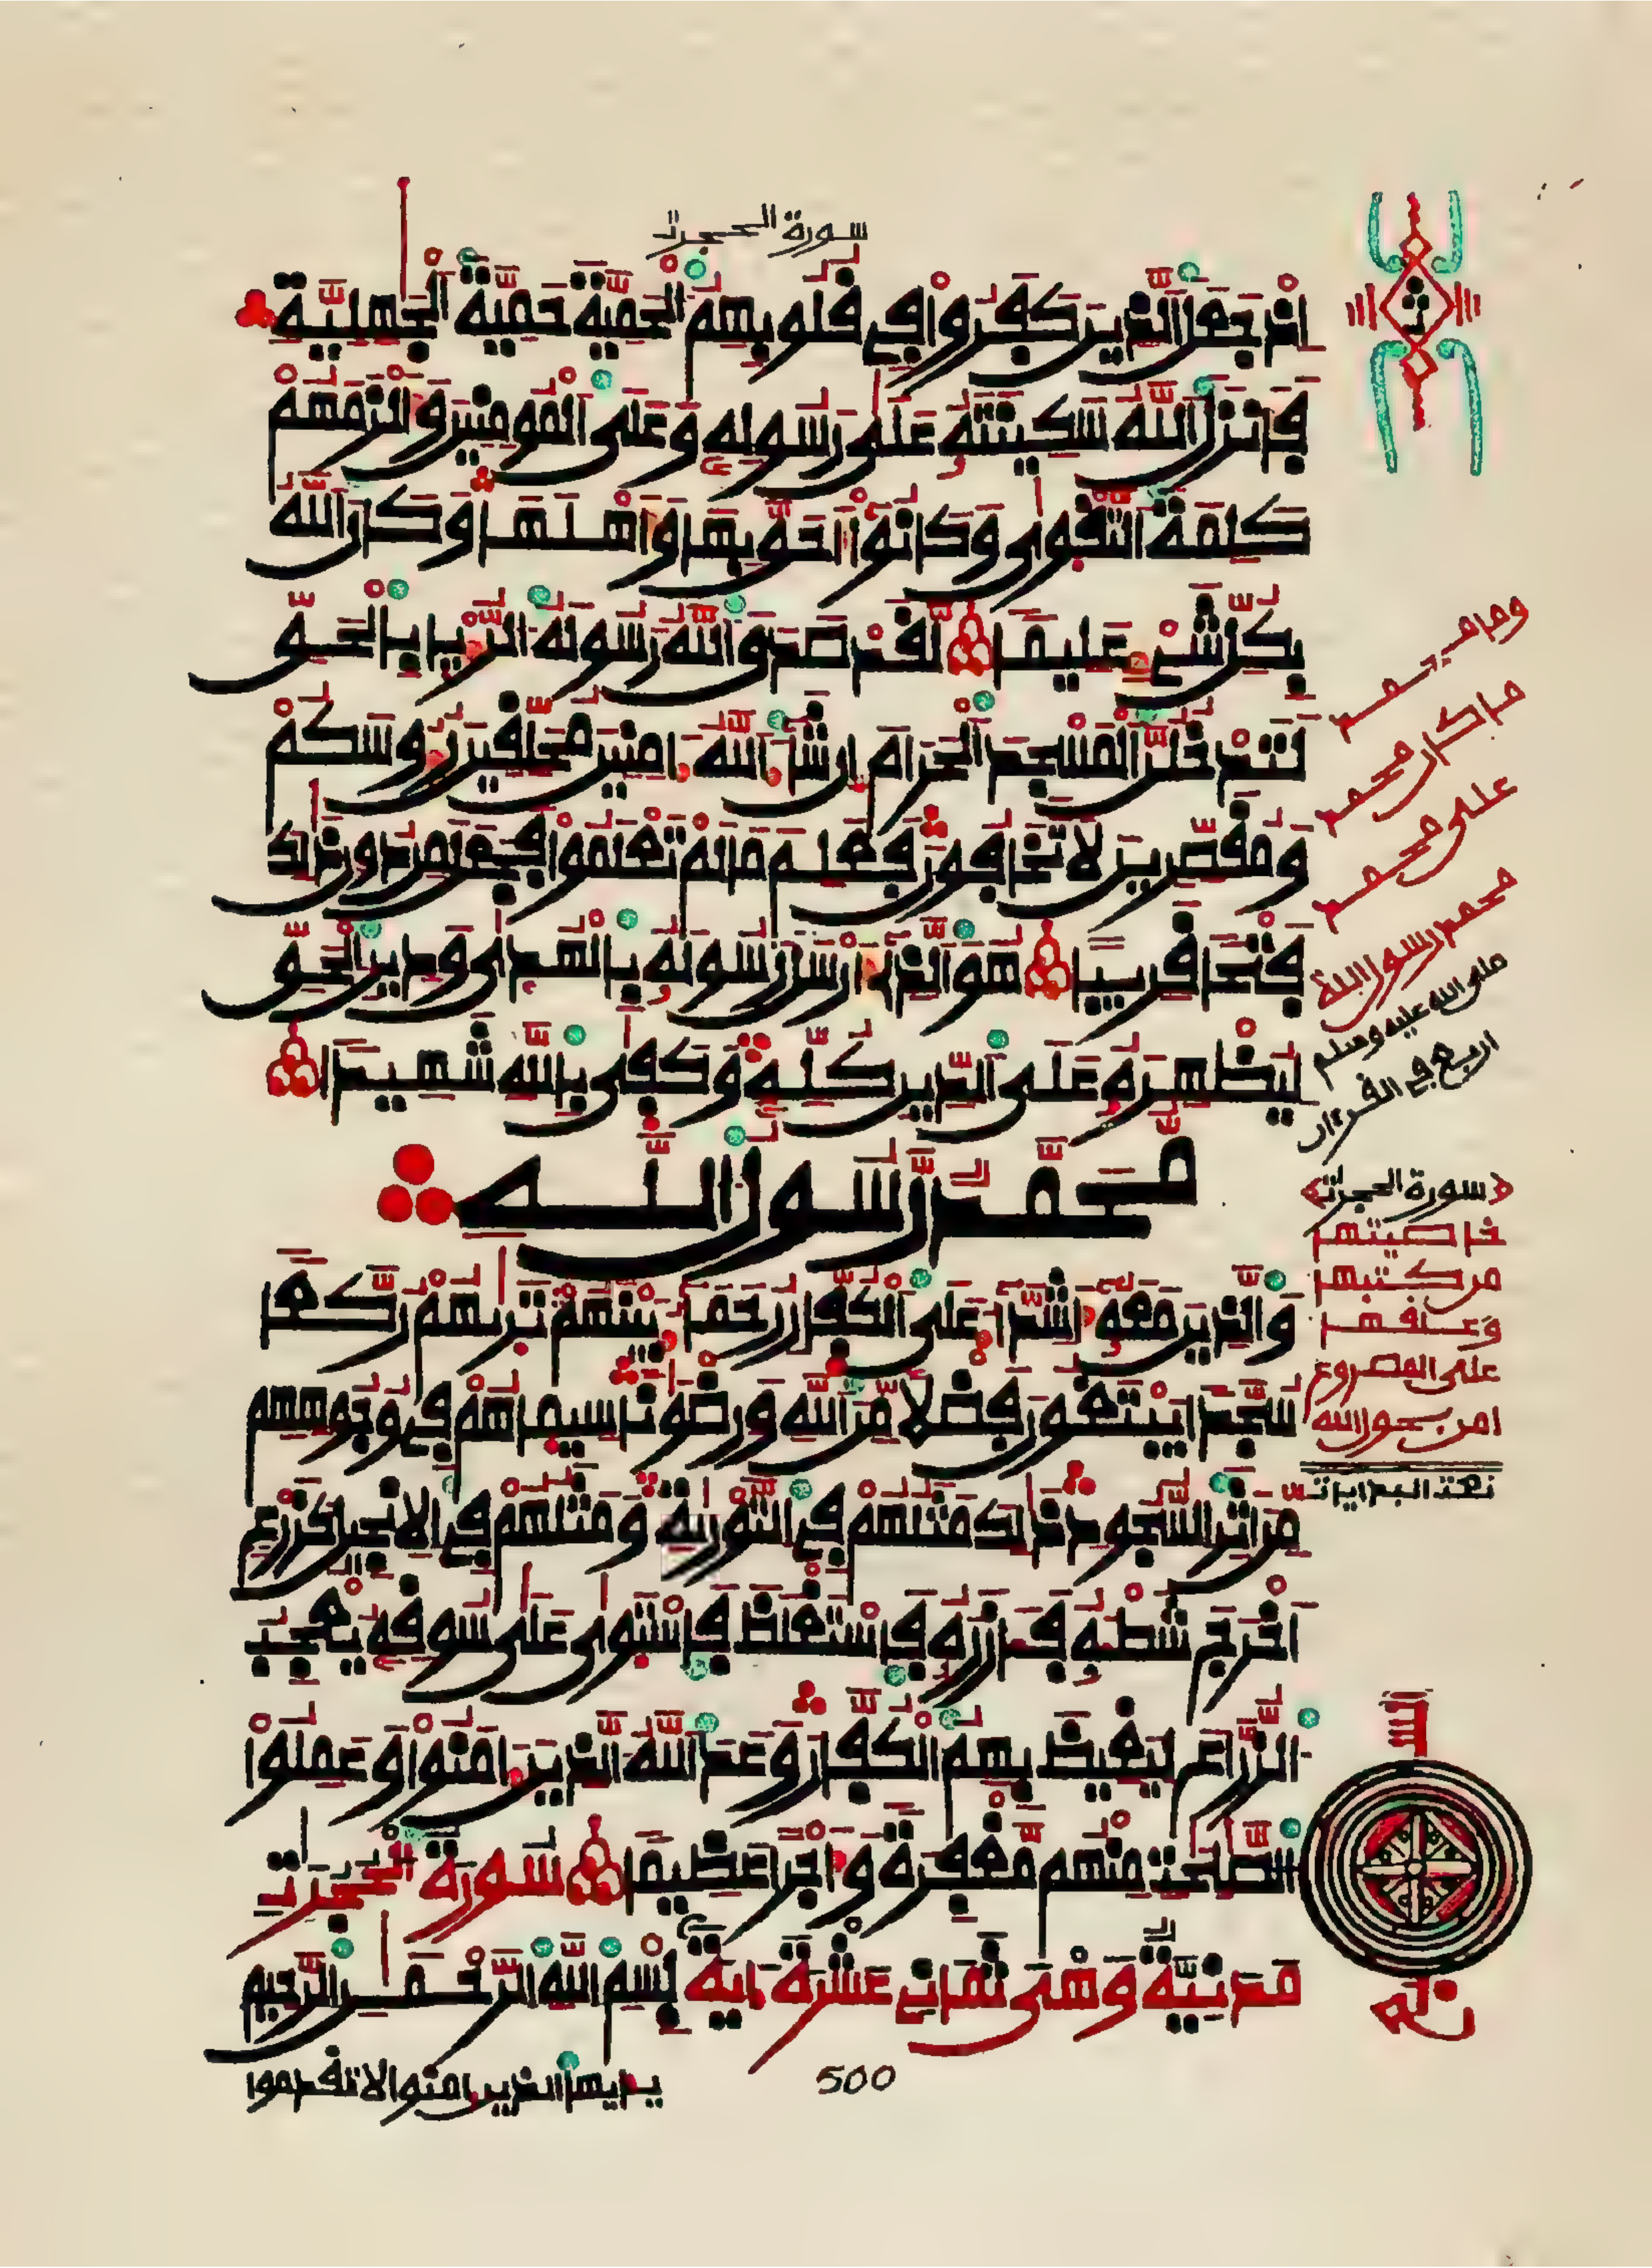 سورة الحجرت
إذ جعل الذين كفروا في قلوبهم الحمية حمية الجهلية
فأنزل الله سكينته على رسوله وعلى المومنين وألزمهم
كلمة التقوى وكانوا أحق بها وأهلها وكان الله
بكل شيء عليما لقد صدق الله رسوله الريا بالحق
لتدخلن المسجد الحرام إن شا الله امنين محلقين روسكم
ومقصرين لا تخافون فعلم ما لم تعلموا فجعل من دون ذلك
فتحا قريبا هو الذي أرسل رسوله بالهدى ودين الحق
ليظهره على الدين كله وكفى بالله شهيدا
محمد رسول الله
والذين معه أشدا على الكفار رحما بينهم تريهم ركعا
سجدا يبتغون فضلا من الله ورضونا سيماهم في وجوههم
من أثر السجود ذلك مثلهم في التورية ومثلهم في الانجيل كزرع
أخرج شطه فازره فاستغلظ فاستوى على سوقه يعجب
الزراع ليغيظ بهم الكفار وعد الله الذين امنوا وعملوا
الصلحت منهم مغفرة وأجرا عظيما سورة الحجرت
مدنية وهي ثمان عشرة اية بسم الله الرحمن الرحيم
يأيها الذين امنوا لا تقدموا
500
وما محمد
ما كان محمد
على محمد
محمد رسول الله
صلى الله عليه وسلم
اربع في القرءان
سورة الحجرت
خاصيتها
من كتبها
وعلقها
على المصروع
امن بحول الله
ثمن